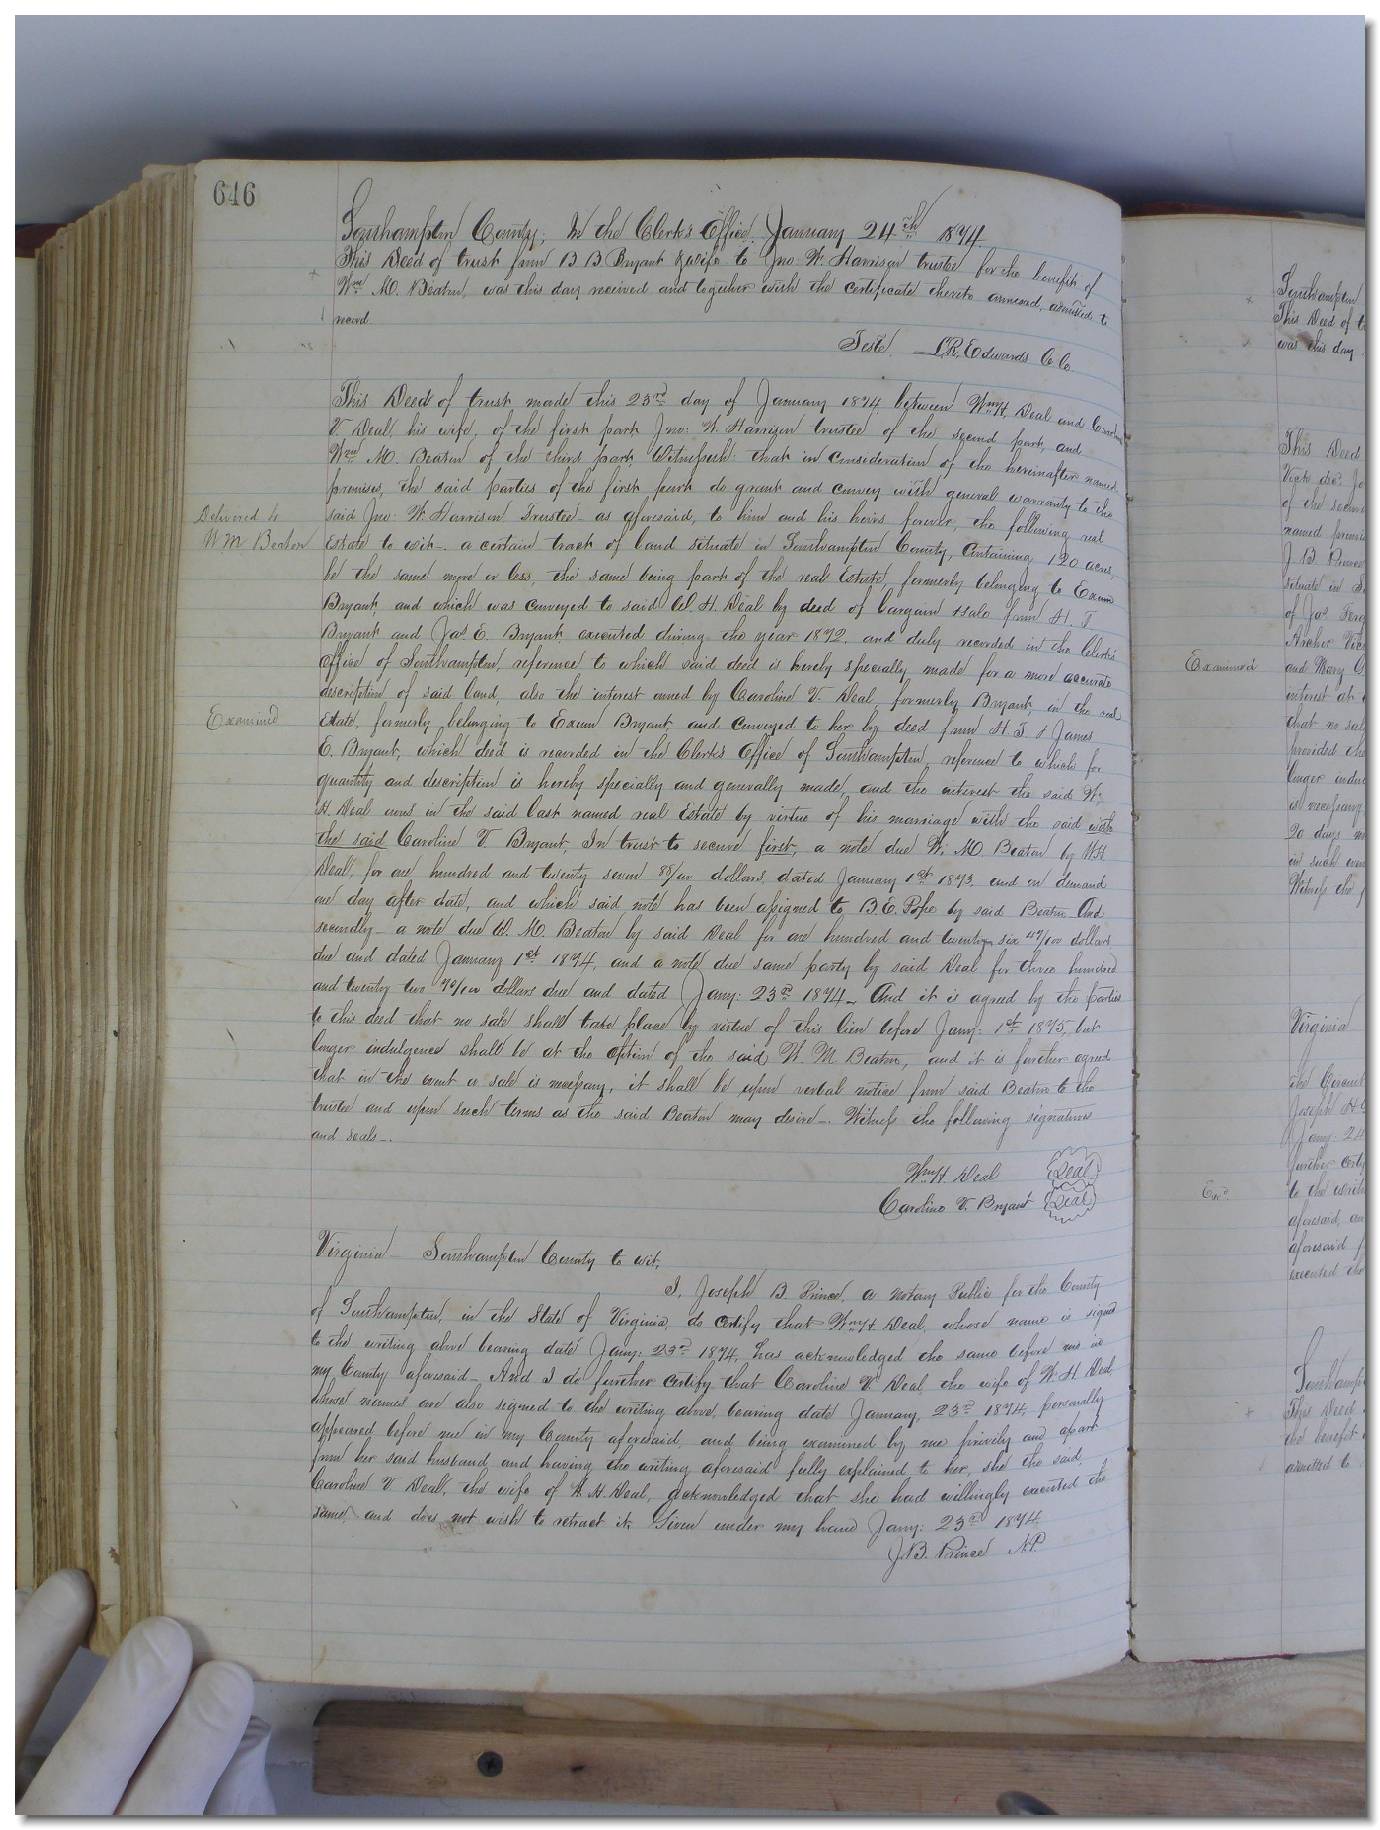 646
Southampton County; In the Clerk's Office January 24th 1874
This Deed of trust from B B Bryant & wife to Jno W. Harrison trustee for the benefit of
Wm M. Beaton, was this day received and together with the certificate thereto annexed, admitted to
record
Teste L.R. Edwards C.C.
This Deed of trust made this 23rd day of January 1874 between Wm H. Deal and Caroline
V. Deal, his wife, of the first part, Jno: W. Harrison trustee of the second part, and
Wm M. Beaton of the third part, Witnesseth: that in consideration of the hereinafter named
premises, the said parties of the first part do grant and convey with general warranty to the
said Jno. W. Harrison Trustee as aforesaid, to him and his heirs forever, the following real
Estate to wit-. a certain tract of land situate in Southampton County, Containing 120 acres,
be the same more or less, the same being part of the real Estate, formerly belonging to Exum
Bryant, and which was conveyed to said W. H. Deal by deed of bargain & sale from H. T
Bryant and Jas. E. Bryant executed during the year 1872, and duly recorded in the Clerk's
Office of Southampton, reference to which said deed is hereby specially made for a more accurate
description of said land, also the interest owned by Caroline V. Deal, formerly Bryant, in the real
Estate, formerly belonging to Exum Bryant and conveyed to her by deed from H. T & James
E. Bryant, which deed is recorded in the Clerk's Office of Southampton, reference to which for
quantity and description is hereby specially and generally made, and the interest the said Wm
H. Deal owns in the said last named real Estate by virtue of his marriage with the said with
the said Caroline V. Bryant, In trust to secure first, a note due W. M. Beaton by W H
Deal, for one hundred and twenty seven 88/100 dollars, dated January 1st 1873, and on demand
one day after date, and which said note has been assigned to B.E. Pope by said Beaton And
secondly- a note due W. M. Beaton by said Deal for one hundred and twenty six 47/100 dollars
due and dated January 1st 1874, and a note due same party by said Deal for three hundred
and twenty two 70/100 dollars due and dated Jany: 23rd 1874- And it is agreed by the parties
to this deed that no sale shall take place by virtue of this lien before Jany: 1st 1875, but
longer indulgence shall be at the option of the said W. M. Beaton, and it is further agreed
that in the event a sale is necessary, it shall be upon verbal notice from said Beaton to the
trustee and upon such terms as the said Beaton may desire-. Witness the following signatures
and seals-.
Wm H Deal Seal
Caroline V. Bryant Seal
Virginia Southampton County to wit,
I, Joseph B. Prince, a Notary Public for the County
of Southampton, in the State of Virginia, do certify that Wm H Deal, whose name is signed
to the writing above bearing date Jany: 23rd 1874, has acknowledged the same before me in
my County aforesaid- And I do further certify that Caroline V. Deal, the wife of W. H. Deal,
whose names are also signed to the writing above, bearing date January, 23rd 1874, personally
appeared before me in my County aforesaid, and being examined by me privily and apart
from her said husband, and having the writing aforesaid fully explained to her, she the said
Caroline V. Deal, the wife of W. H. Deal, acknowledged that she had willingly executed the
same, and does not wish to retract it, Given under my hand Jany: 23rd 1874
J. B. Prince N.P.
Delivered to
W M Beaton
Examined
Southampton
This Deed of
was this day
This Deed
of the
named
situate in
of Jas
Archer
and Mary
interest at
that no
provided
longer
is necessary
20 days
in such
Witness the
Examined
Virginia
the
Joseph H
Jany: 24
further
to the
aforesaid,
aforesaid
executed the
This Deed
the benefit
admitted to